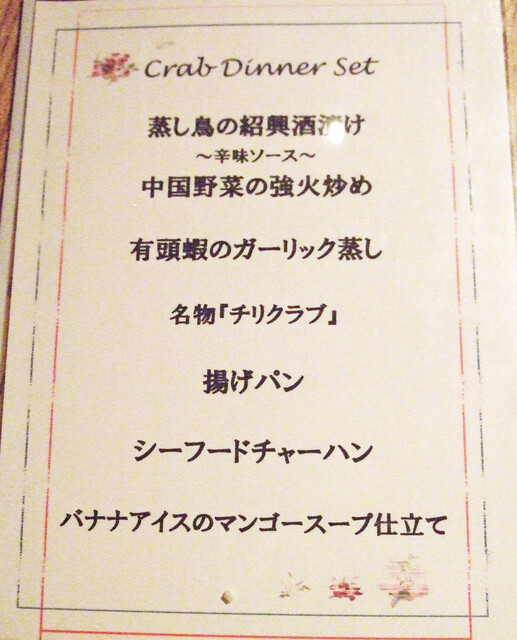 Crab Dinner Set
蒸し鳥の紹興酒漬け
～辛味ソース～
中国野菜の強火炒め
有頭蝦のガーリック蒸し
名物『チリクラブ』
揚げパン
シーフードチャーハン
バナナアイスのマンゴースープ仕立て